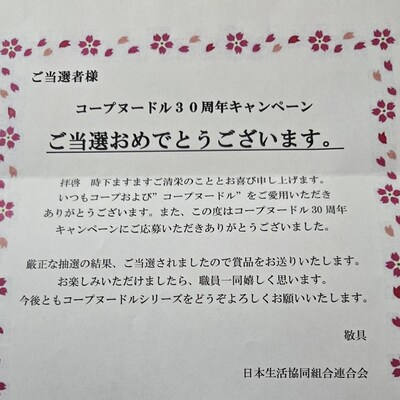 ご当選者様
コープヌードル３０周年キャンペーン
ご当選おめでとうございます。
拝啓　時下ますますご清栄のこととお喜び申し上げます。
いつもコープおよび”コープヌードル”をご愛用いただき
ありがとうございます。また、この度はコープヌードル30周年
キャンペーンにご応募いただきありがとうございました。
厳正な抽選の結果、ご当選されましたので賞品をお送りいたします。
お楽しみいただけましたら、職員一同嬉しく思います。
今後ともコープヌードルシリーズをどうぞよろしくお願いいたします。
敬具
日本生活協同組合連合会